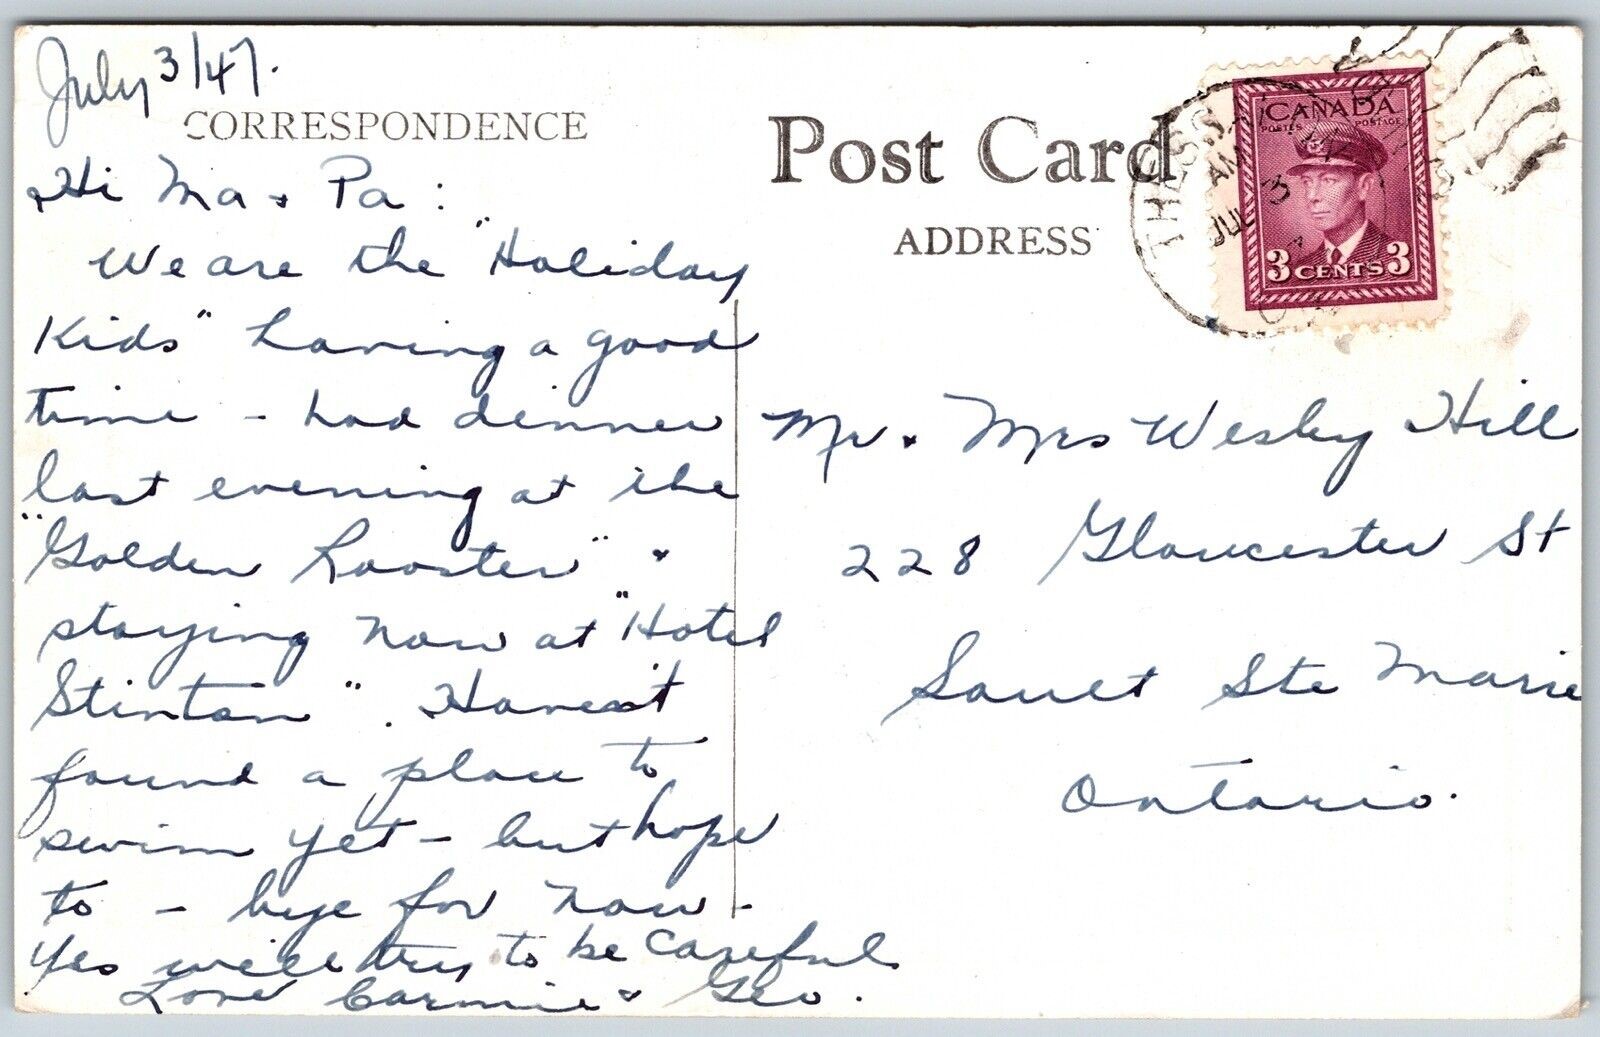 July 3/47.
CORRESPONDENCE
Hi Ma & Pa :
We are the "Holiday
Kids" having a good
time - had dinner
last evening at the
"Golden Rooster" &
staying now at "Hotel
Stinton". Haven't
found a place to
swim yet - but hope
to - bye for now -
Yes will try to be careful
Love Carmie & Geo.
Post Card
ADDRESS
THESSALON
AM
JUL 3
CANADA
POSTES POSTAGE
3 CENTS 3
Mr & Mrs Wesley Hill
228 Gloucester St
Sault Ste Marie
Ontario.